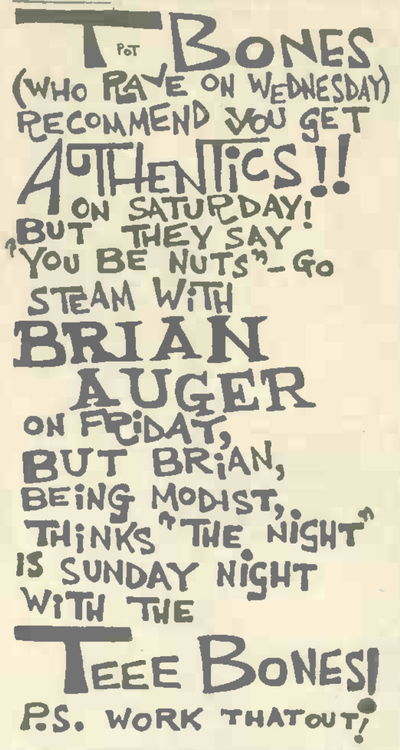 T POT BONES
(WHO RAVE ON WEDNESDAY)
RECOMMEND YOU GET
AUTHENTiCS!!
ON SATURDAY!
BUT THEY SAY
"YOU BE NUTS" – GO
STEAM WiTH
BRIAN
AUGER
ON FRiDAY,
BUT BRiAN,
BEiNG MODiST,
THiNKS "THE NiGHT"
IS SUNDAY NiGHT
WiTH THE
TEEE BONES!
P.S. WORK THAT OUT!